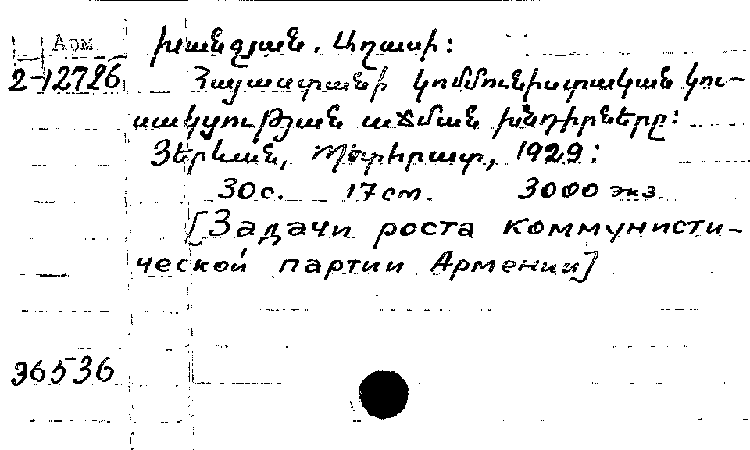 Арм
2-12726
Խանջյան. Աղասի:
Հայաստանի կոմմունիստական կու-
սակցության աճման խնդիրները:
Յերևան, Պետհրատ, 1929:
30с. 17 cm. 3000 экз.
[Задачи роста коммунисти-
ческой партии Армении]
36536